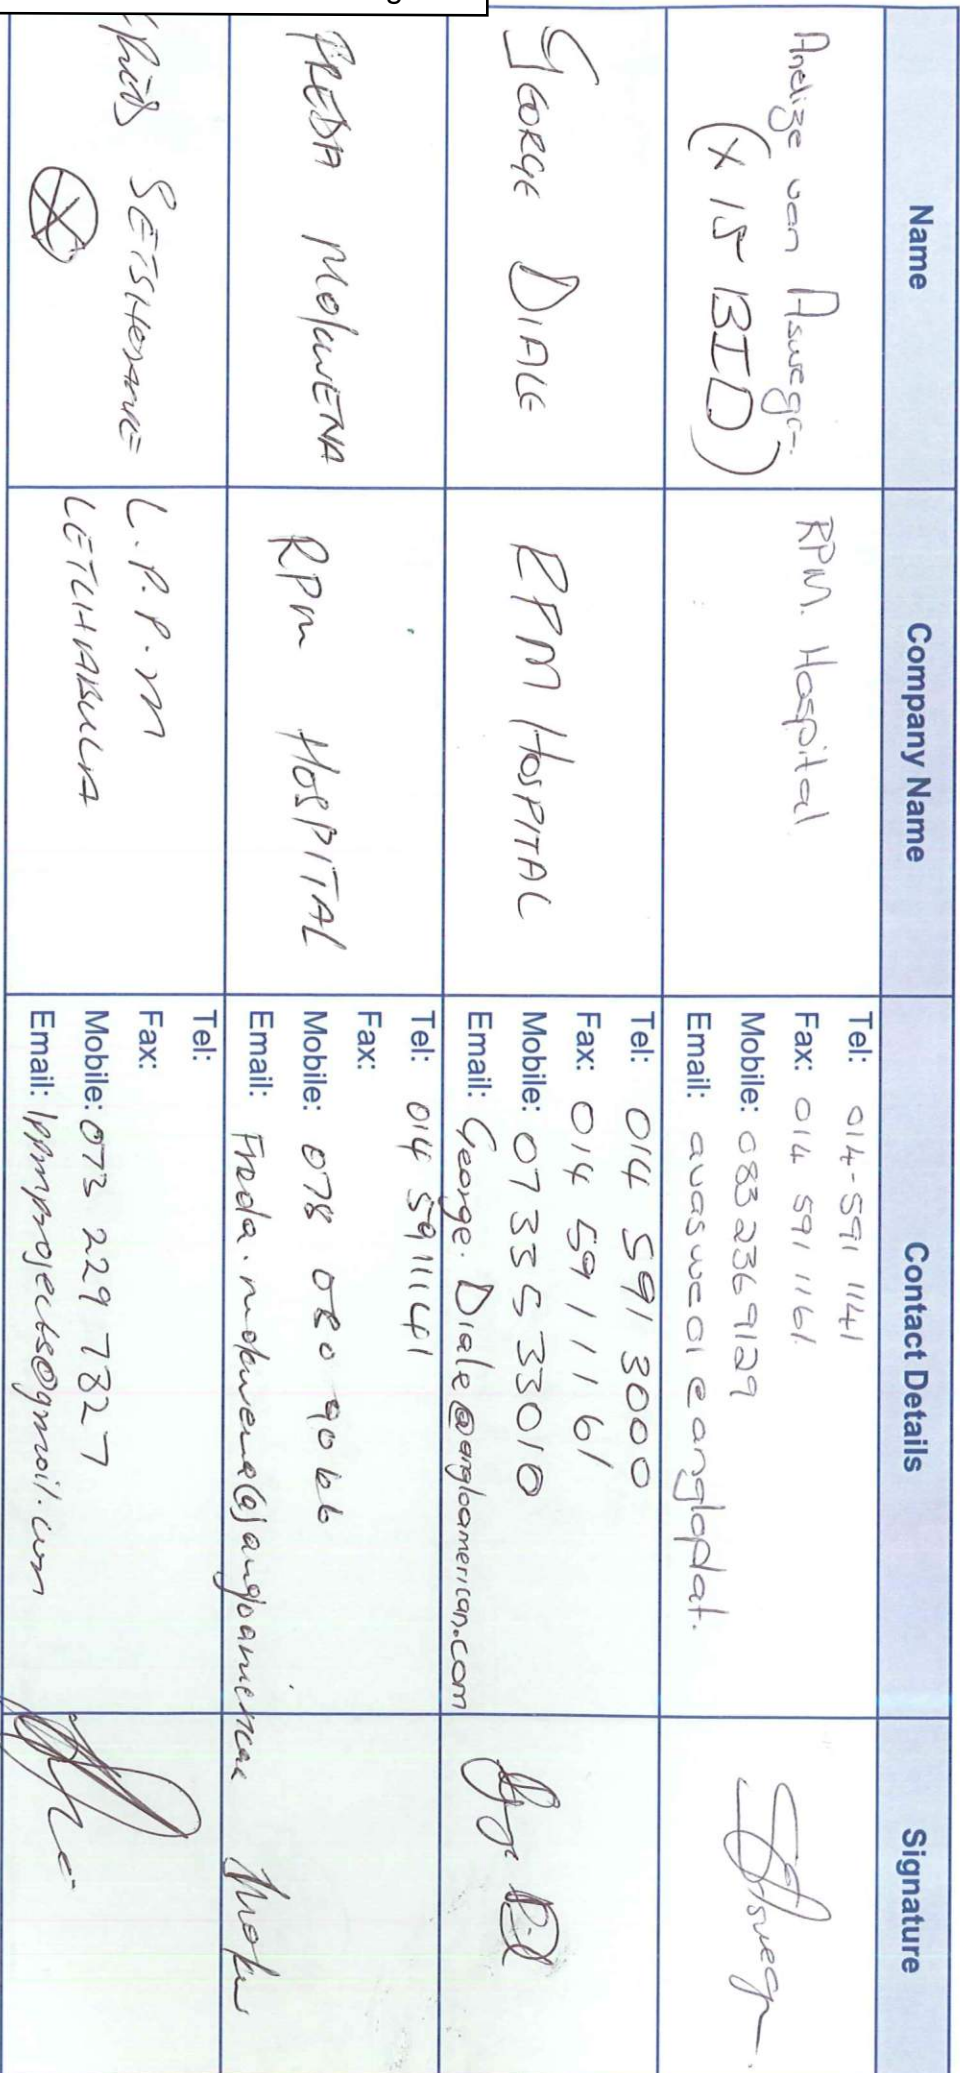 Name Company Name Contact Details Signature
Anelize van Aswegen
(x 15 BID)
RPM. Hospital
Tel: 014-591 1141
Fax: 014 591 1161
Mobile: 083 236 9129
Email: avaswe01@angloplat.
GEORGE DIALE
RPM HOSPITAL
Tel: 014 591 3000
Fax: 014 59 1 1 1 61
Mobile: 07 335 33010
Email: George.Diale@angloamerican.com
FREDA MOKWENA
RPM HOSPITAL
Tel: 014 5911141
Fax:
Mobile: 078 080 9066
Email: Freda.mokwena@angloamerican
SETSHOANE
L.P.P.M
LETLHABULA
Tel:
Fax:
Mobile: 073 229 7827
Email: lppmprojects@gmail.com